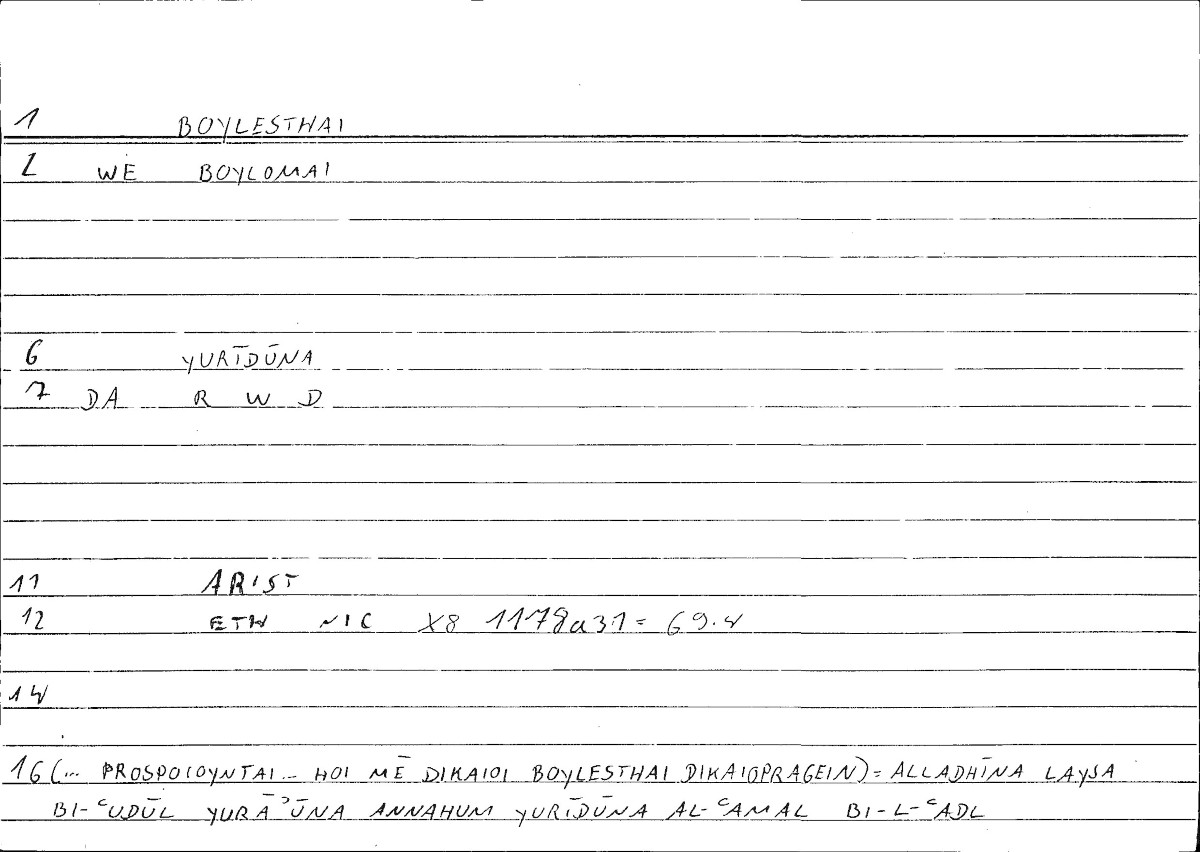 1 BOYLESTHAI
2 WE BOYLOMAI
6 YURĪDŪNA
7 DA R W D
11 ARIST
12 ETH NIC X8 1178a31 = 69.4
14
16 (... PROSPOIOYNTAI ... HOI MĒ DIKAIOI BOYLESTHAI DIKAIOPRAGEIN) = ALLADHĪNA LAYSA
BI-ʿUDŪL YURĀʾŪNA ANNAHUM YURĪDŪNA AL-ʿAMAL BI-L-ʿADL